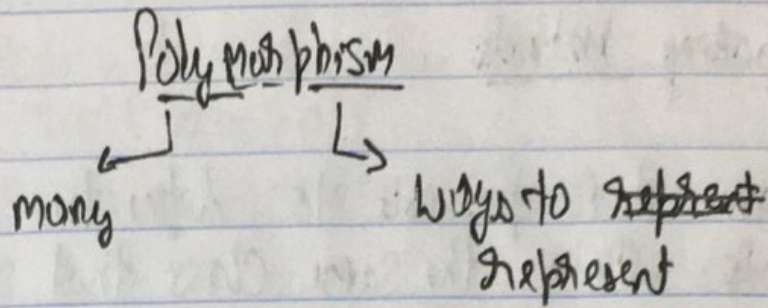 Polymorphism
many
ways to represent
represent